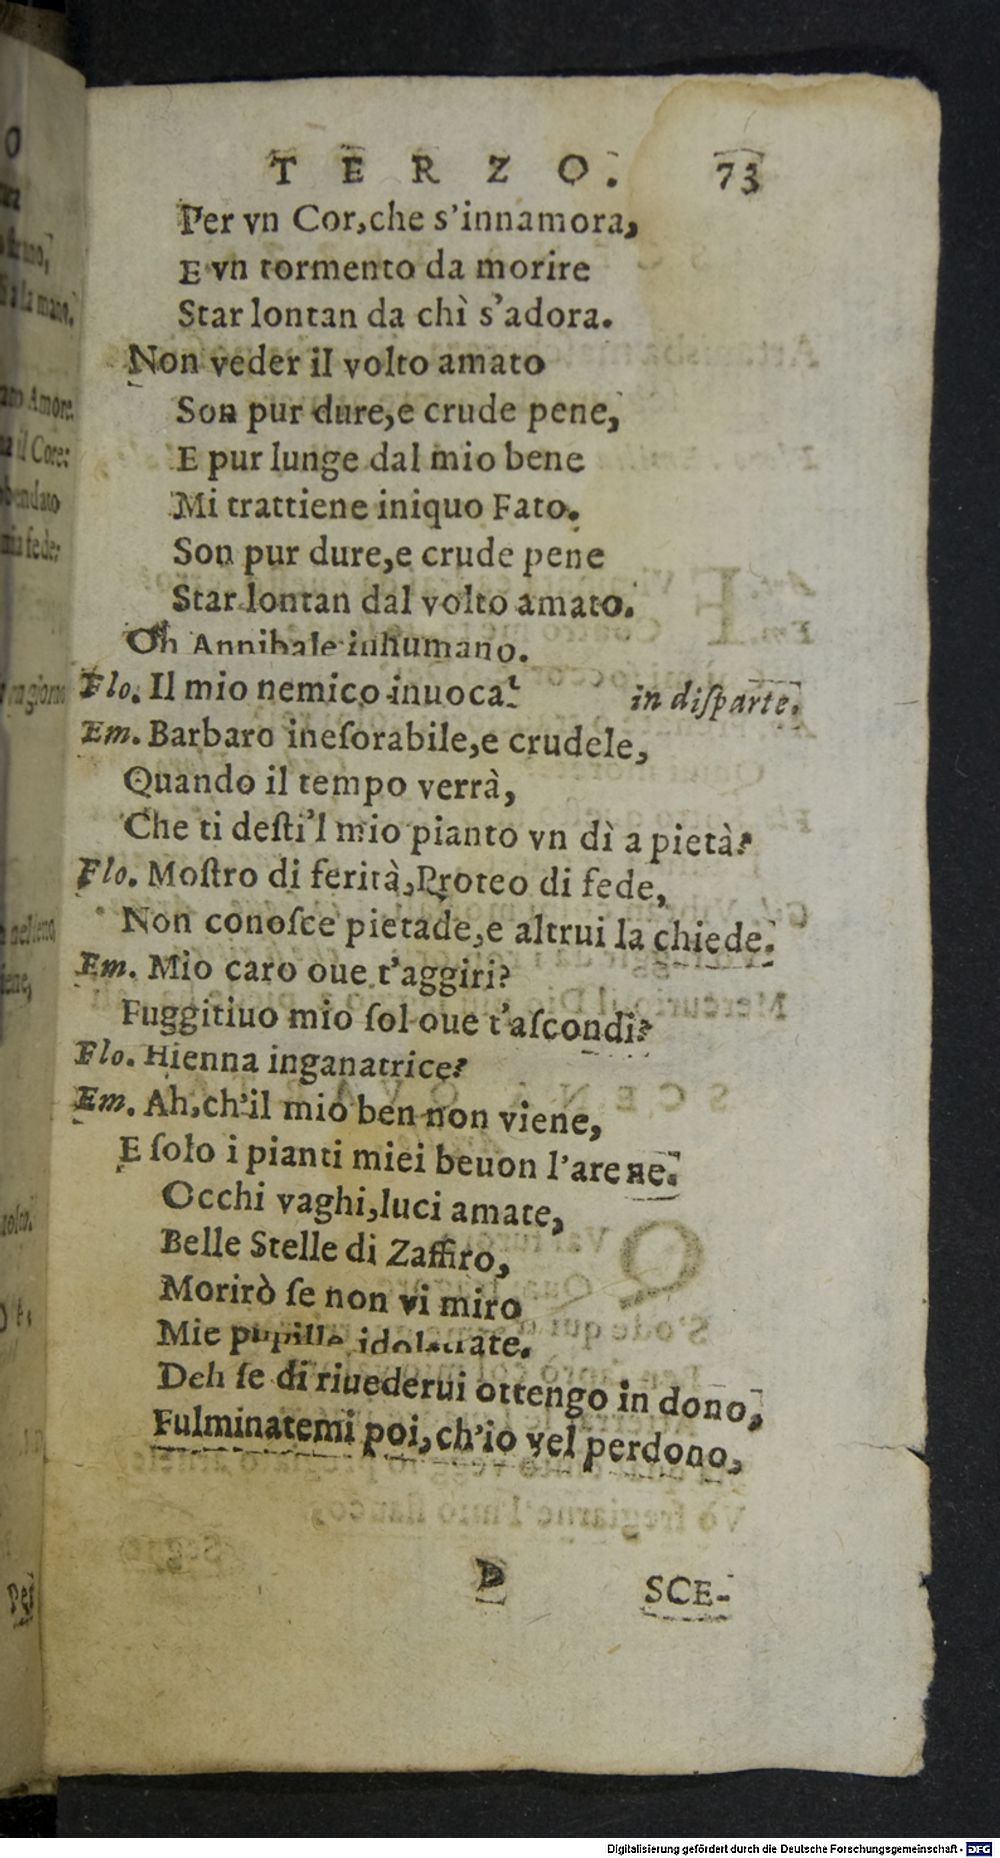 TERZO. 73
Per vn Cor, che s'innamora,
E vn tormento da morire
Star lontan da chì s'adora.
Non veder il volto amato
Son pur dure, e crude pene,
E pur lunge dal mio bene
Mi trattiene iniquo Fato.
Son pur dure, e crude pene
Star lontan dal volto amato.
Oh Annibale inhumano.
Flo. Il mio nemico inuoca! in diſparte.
Em. Barbaro ineſorabile, e crudele,
Quando il tempo verrà,
Che ti deſti'l mio pianto vn dì a pietà?
Flo. Moſtro di ferità, Proteo di fede,
Non conoſce pietade, e altrui la chiede.
Em. Mio caro oue t'aggiri?
Fuggitiuo mio ſol oue t'aſcondi?
Flo. Hienna inganatrice?
Em. Ah, ch'il mio ben non viene,
E ſolo i pianti miei beuon l'arene.
Occhi vaghi, luci amate,
Belle Stelle di Zaffiro,
Morirò ſe non vi miro
Mie pupille idolatrate.
Deh ſe di riuederui ottengo in dono,
Fulminatemi poi, ch'io vel perdono,
D SCE-
Digitalisierung gefördert durch die Deutsche Forschungsgemeinschaft - DFG